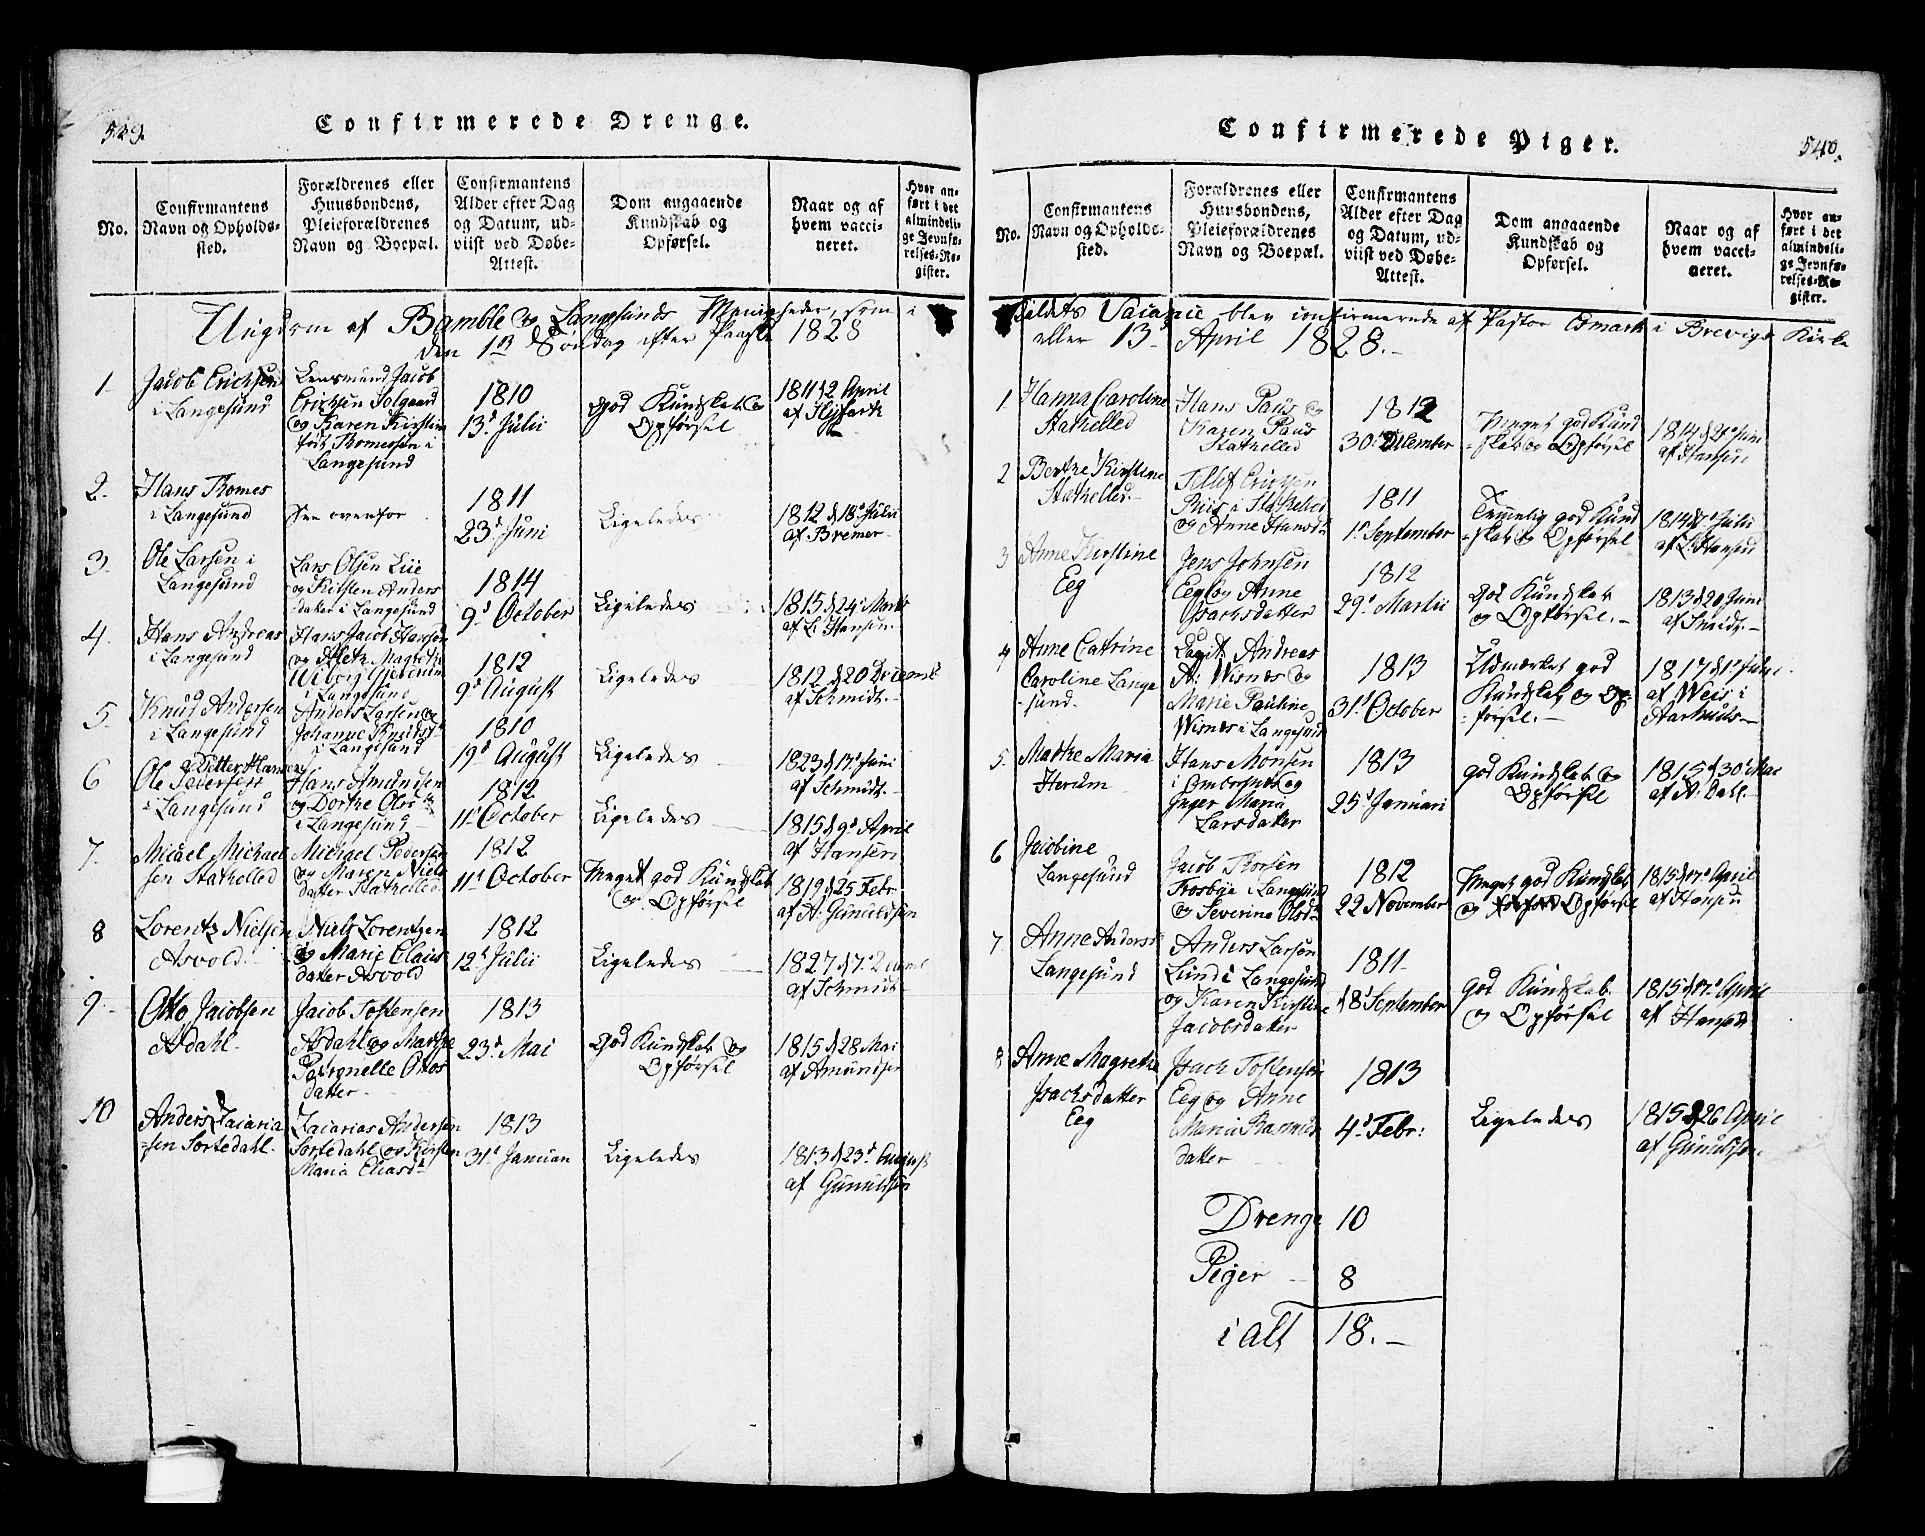 539.
Confirmerede Drenge.
No.
Confirmantens
Navn og Opholds-
sted.
Forældrenes eller
Huusbondens,
Pleieforældrenes
Navn og Boepæl.
Confirmantens
Alder efter Dag
og Datum, ud-
viist ved Døbe-
Attest.
Dom angaaende
Kundskab og
Opførsel.
Naar og af
hvem vacci-
neret.
Hvor an-
ført i det
almindeli-
ge Jevnfø-
relses-Re-
gister.
Ungdom af Bamble og Langesunds Menigheder, som i
den 1ste Søndag efter Paaske 1828
1.
Jacob Erichsen
i Langesund
Lensmand Jacob
Erichsen
og Karen Kirstine
født Thomesen i
Langesund
1810
13d Julii
god Kundskab og
Opførsel
1811 d 2 April
af
2.
Hans Thomes
i Langesund
See ovenfor
1811
23d Juni
Ligeledes
1812 d 18d Juli
af Bremer
3.
Ole Larsen i
Langesund
Lars Olsen Lie
og Kirsten Anders
datter i Langesund
1814
9d October
Ligeledes
1815 d 24d Marts
af L: Hansen
4.
Hans Andreas
i Langesund
Hans Jacob Hansen
og Magrethe
Wiborg
i Langesund
1812
9d August
Ligeledes
1812 d 20 Decemb
af Schmidt.
5.
Knud Andersen
i Langesund
Anders Larsen og
Johanne Knudsd
i Langesund
1810
19d August
Ligeledes
1823 d 17d Juni
af Schmidt.
6
Ole Ditter Hansen
Pedersen
i Langesund
Hans Amundsen
og Dorthe Olsd
i Langesund
1812
11d October
Ligeledes
1815 d 9d April
af Hansen
7.
Micael Michael
sen Stathelled
Michael Pedersen
og Maren Niels
datter Stathelled
1812
11d October
Meget god Kundskab
og Opførsel
1819 d 25 Febr
af A: Gunuldsen
8
Lorentz Nielsen
Asvold
Niels Lorentzen
og Marie Claus
datter Asvold
1812
12d Julii
Ligeledes
1827 d 7d
af Schmidt
9.
Otto Jacobsen
Asdahl
Jacob Tostensen
Asdahl og Marthe
Petronelle Ottos
datter
1813
23d Mai
God Kundskab og
Opførsel
1815 d 28 Mai
af Amundsen
10
Anders Zacaria
sen Sortedahl
Zacarias Andersen
Sortedahl og Kirsten
Maria Eliasd
1813
31d Januari
Ligeledes
1813 d 23d August
af Gunuldsen
Confirmerede Piger.
540.
No.
Confirmantens
Navn og Opholds-
sted.
Forældrenes eller
Huusbondens,
Pleieforældrenes
Navn og Boepæl.
Confirmantens
Alder efter Dag
og Datum, ud-
viist ved Døbe-
Attest.
Dom angaaende
Kundskab og
Opførsel.
Naar og af
hvem vacci-
neret.
Hvor an-
ført i det
almindeli-
ge Jevnfø-
relses-Re-
gister.
Kaldets Vacance blev confirmerede af Pastor Esmark i Brevigs Kirke
eller 13d April 1828.
1
Hanna Caroline
Stathelled
Hans Paus og
Karen Paus
Stathelled
1812
30d December
Meget god Kund
skab og Opførsel
1814 d 21d Juni
af Hansen
2
Berthe Kirstine
Stathelled
Tellef Ericksen
Riis i Stathelled
og Anne Hansd
1811
1d September
Temmelig god Kund
skab og Opførsel
1814 d 7d Julii
af L: Hansen
3
Anne Kirstine
Eeg
Jens Johnsen
Eeg og Anne
Isachsdatter
1812
29d Martii
God Kundskab
og Opførsel.
1813 d 20 Juni
af Smidt.
4
Anne Catrine
Caroline Lange
sund.
Capit. Andreas
A: Wisnes og
Marie Pauline
Wisnes i Langesund
1813
31d October
Udmærket god
Kundskab og Op
førsel.
1817 d 1d
af Weis i
5.
Marthe Maria
Herum
Hans Monsen
i og
Inger Maria
Larsdatter
1813
25d Januari
god Kundskab og
Opførsel
1815 d 30d Mai
af A: Dahl.
6
Jacobine
Langesund
Jacob Thorsen
i Langesund
og Severine Olsd
1812
22 November
Meget god Kundskab
og Opførsel
1815 d 17d April
af Hansen
7.
Anne Andersd
Langesund
Anders Larsen
Lund i Langesund
og Karen Kirstine
Jacobsdatter
1811
18d September
god Kundskab
og Opførsel
1815 d 17d April
af Hansen
8
Anne Magrethe
Isachsdatter
Eeg
Isach Tostensen
Eeg og Anne
Maria Rasmus
datter
1813
4d Febr:
Ligeledes
1815 d 26 April
af Gunuldsen
Drenge 10
Piger 8
i alt 18.